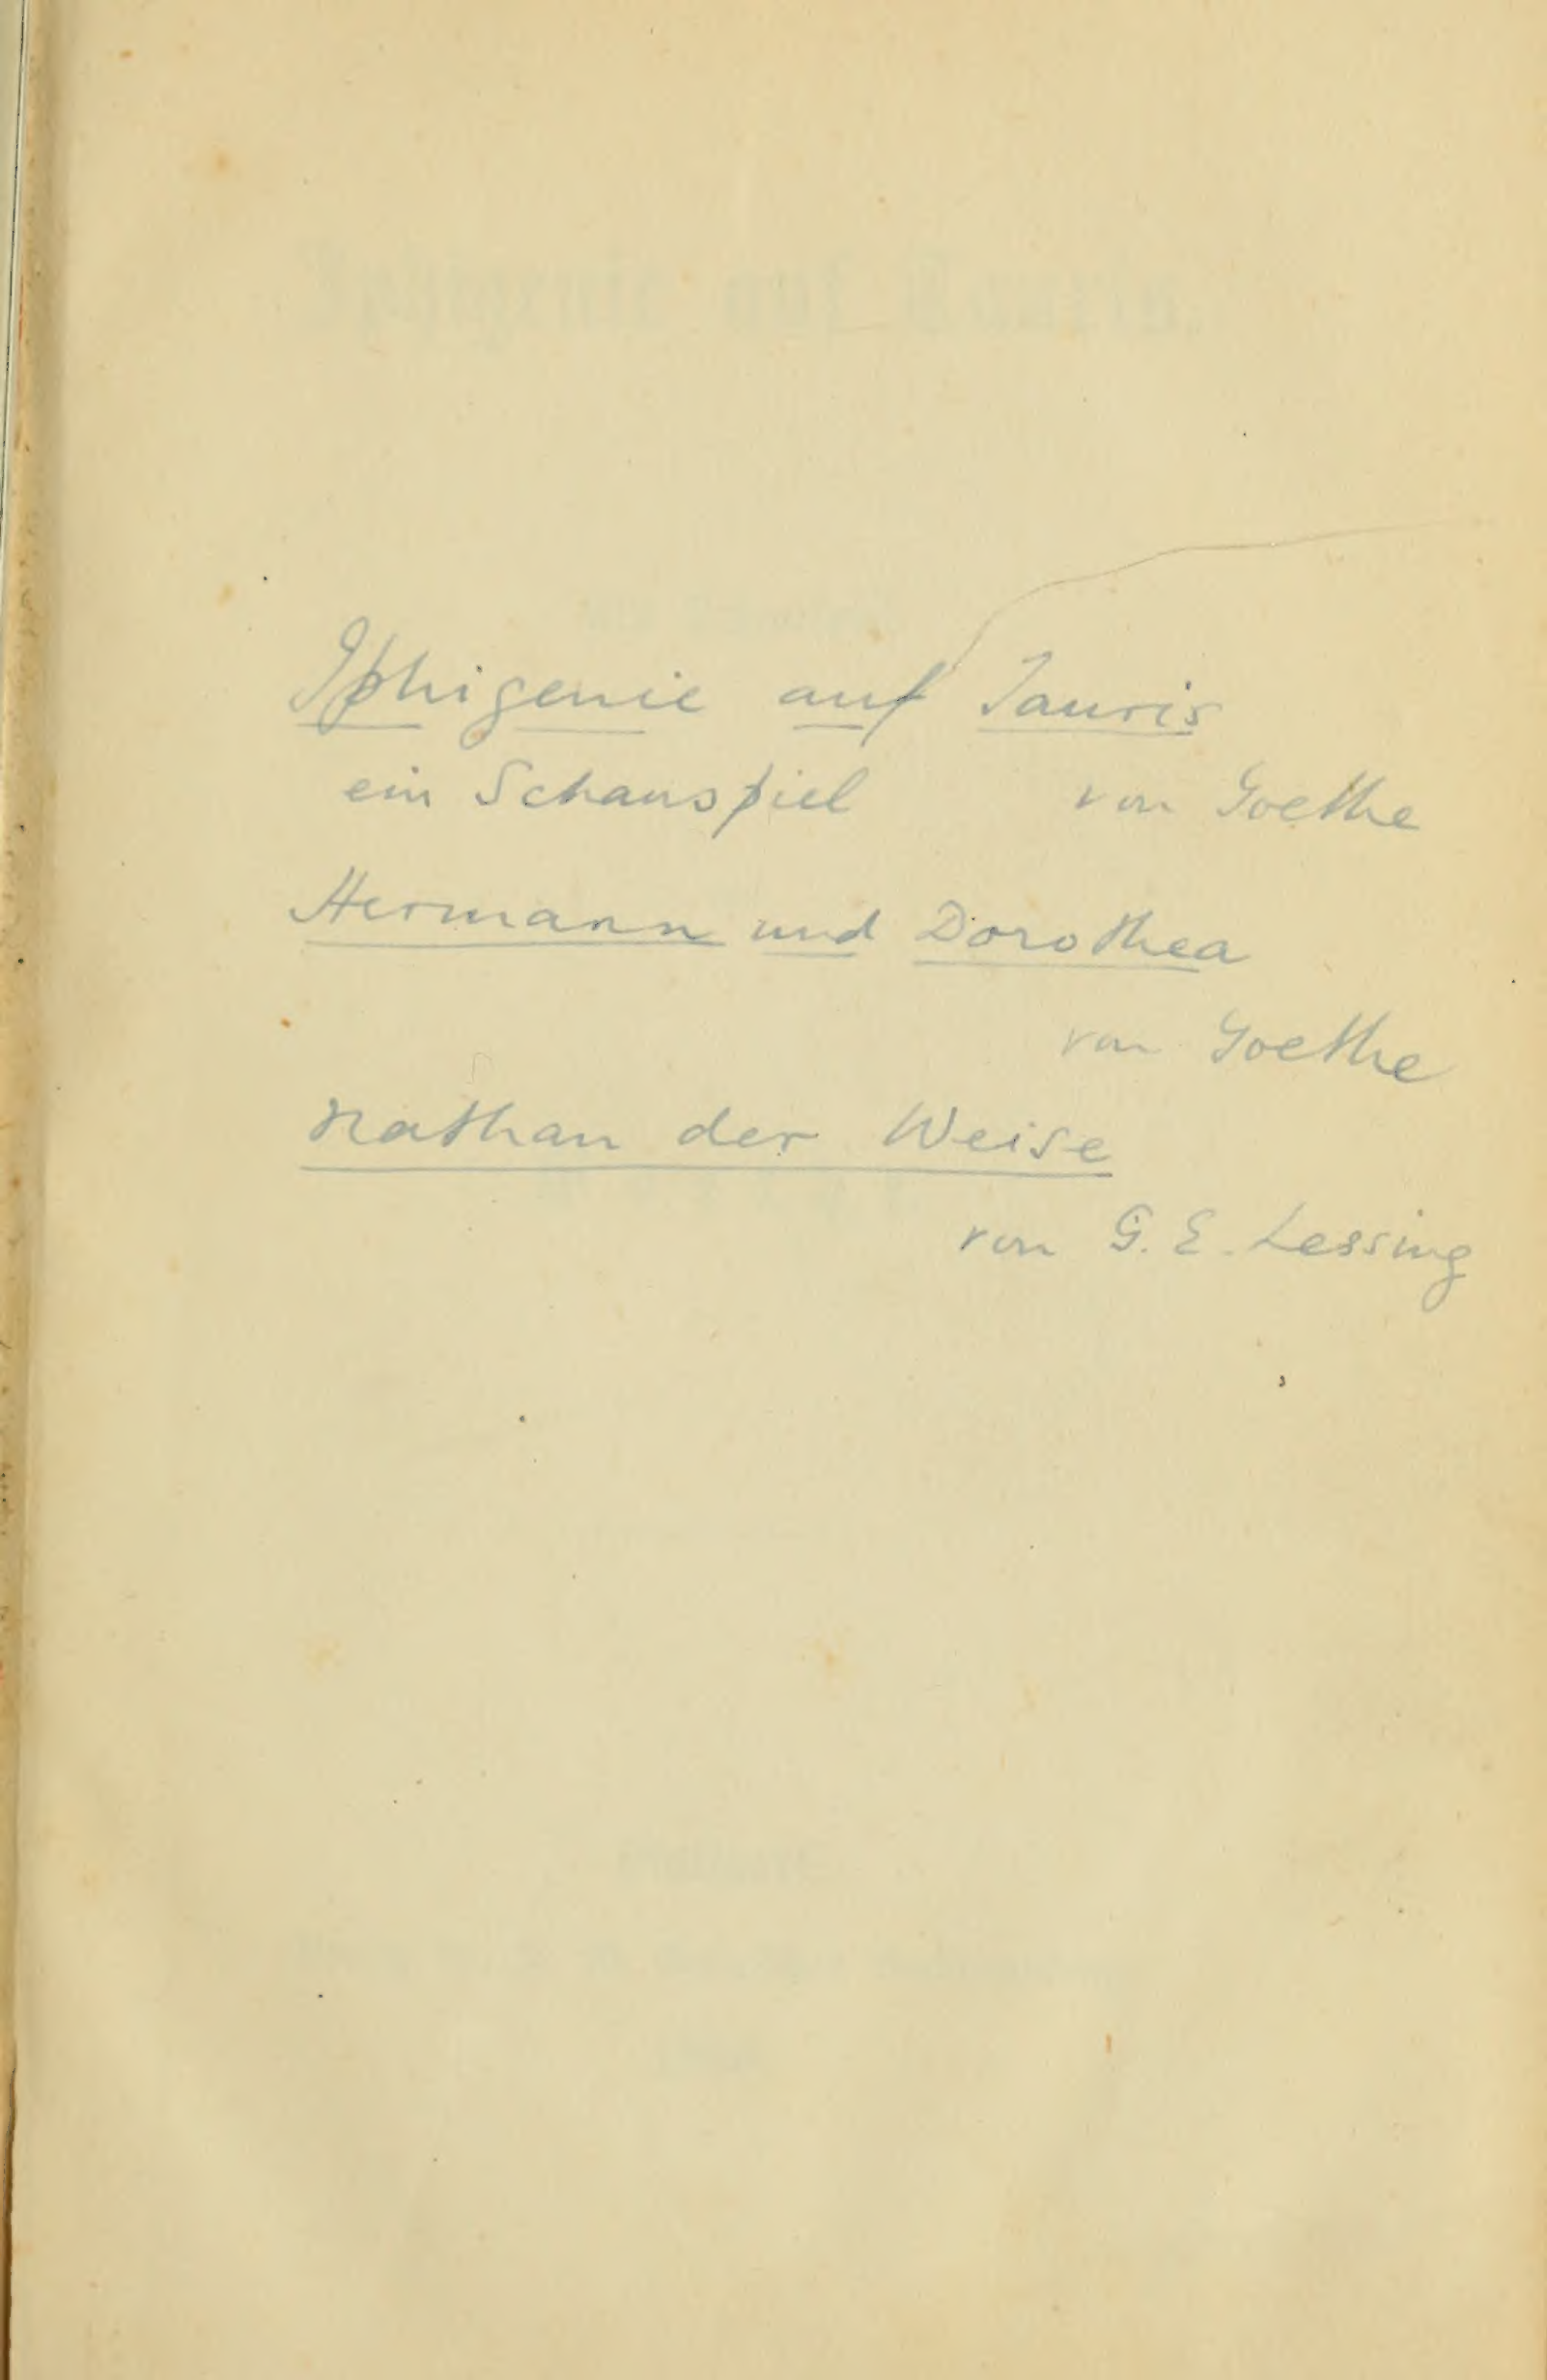 Iphigenie auf Tauris
ein Schauspiel von Goethe
Hermann und Dorothea
von Goethe
Nathan der Weise
von G. E. Lessing